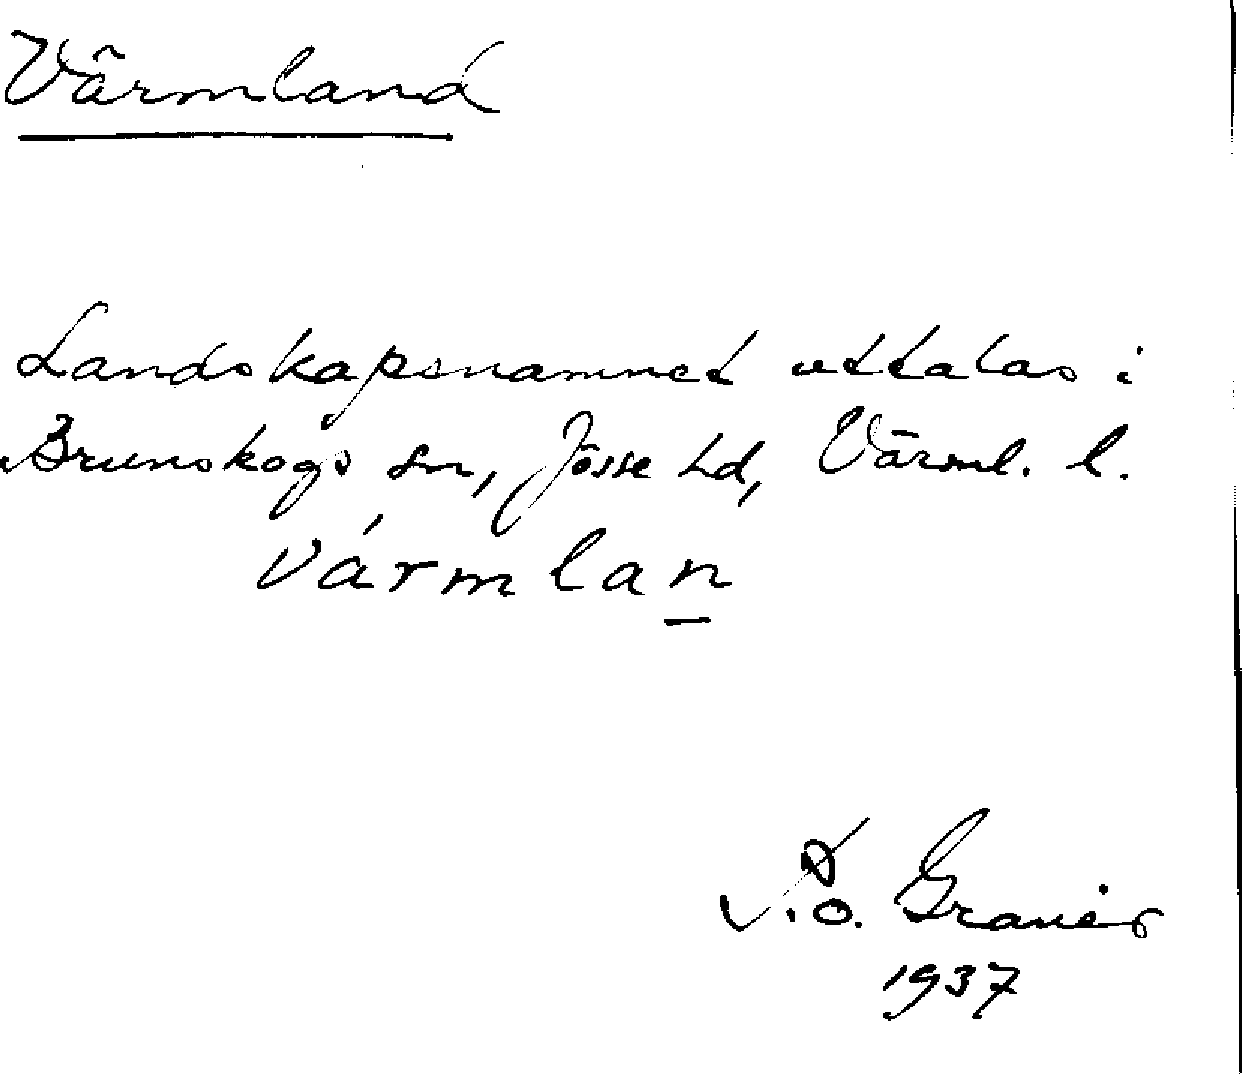 Värmland
Landskapsnamnet uttalas i
Brunskogs sn, Jösse hd, Värml. l.
vármlan
S.O. Granér
1937